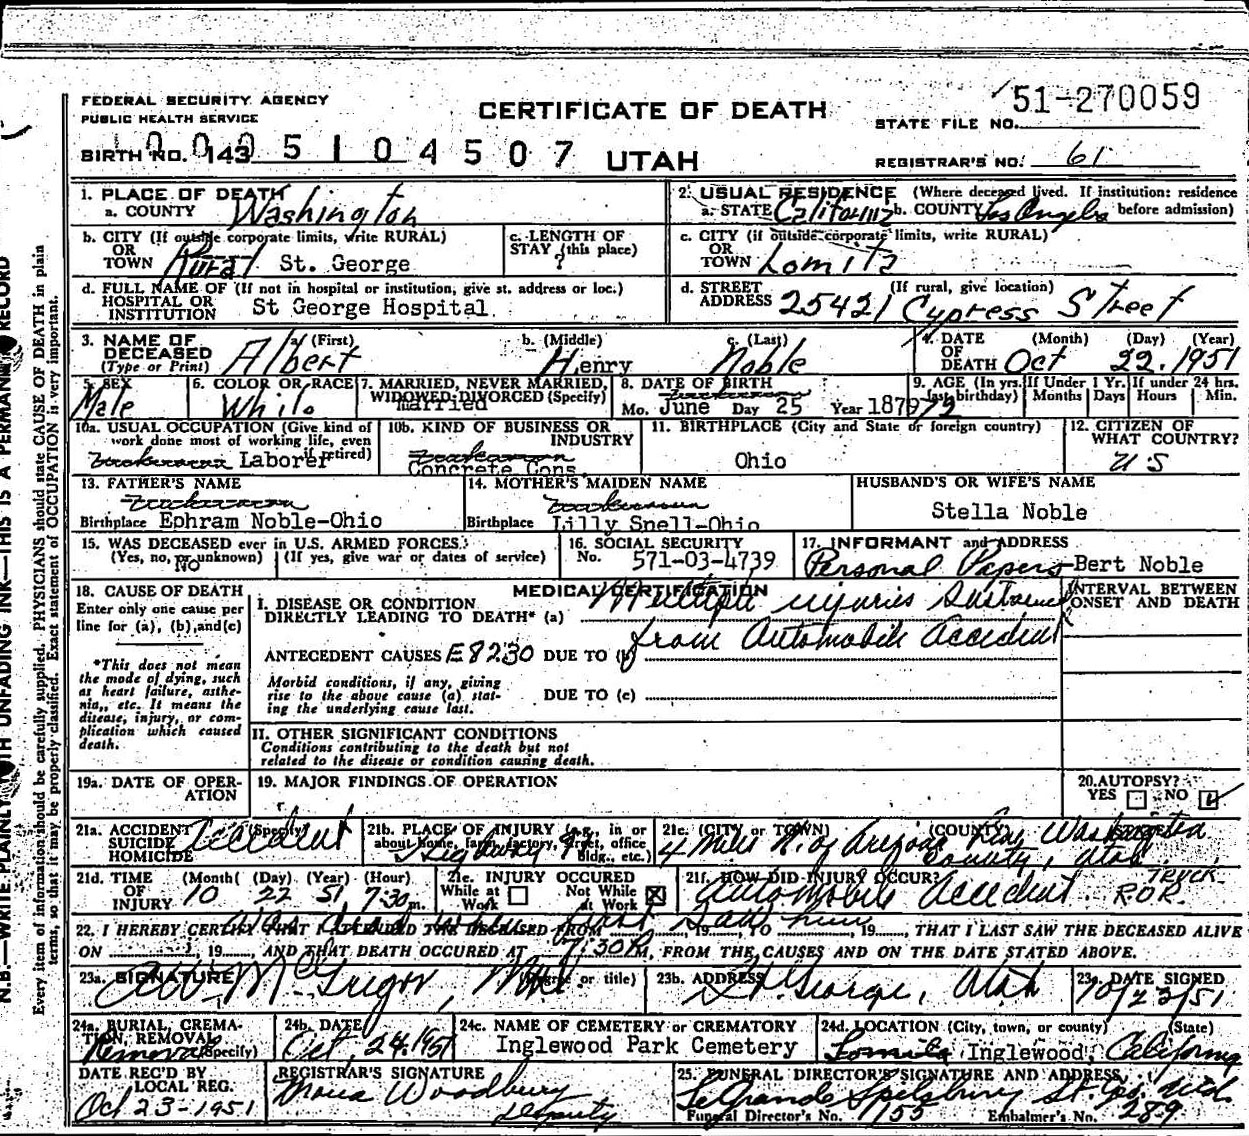 FEDERAL SECURITY AGENCY
PUBLIC HEALTH SERVICE
CERTIFICATE OF DEATH
STATE FILE NO. 51-270059
BIRTH NO. 143
0005104507
UTAH
REGISTRAR'S NO. 61
1. PLACE OF DEATH
a. COUNTY Washington
2. USUAL RESIDENCE (Where deceased lived. If institution: residence before admission)
a. STATE California b. COUNTY Los Angeles
b. CITY (If outside corporate limits, write RURAL)
OR
TOWN Rural St. George
c. LENGTH OF
STAY (this place)
?
c. CITY (if outside corporate limits, write RURAL)
OR
TOWN Lomita
d. FULL NAME OF (If not in hospital or institution, give st. address or loc.)
HOSPITAL OR
INSTITUTION St George Hospital
d. STREET (If rural, give location)
ADDRESS 25421 Cypress Street
3. NAME OF
DECEASED
(Type or Print)
a. (First) Albert
b. (Middle) Henry
c. (Last) Noble
4. DATE
OF
DEATH
(Month) (Day) (Year)
Oct 22. 1951
5. SEX
Male
6. COLOR OR RACE
White
7. MARRIED, NEVER MARRIED,
WIDOWED, DIVORCED (Specify)
Married
8. DATE OF BIRTH
Mo. June Day 25 Year 1879
9. AGE (In yrs. last birthday)
72
If Under 1 Yr.
Months Days
If under 24 hrs.
Hours Min.
10a. USUAL OCCUPATION (Give kind of
work done most of working life, even
if retired)
Laborer
10b. KIND OF BUSINESS OR
INDUSTRY
Concrete Cons
11. BIRTHPLACE (City and State or foreign country)
Ohio
12. CITIZEN OF
WHAT COUNTRY?
U S
13. FATHER'S NAME
Birthplace Ephram Noble-Ohio
14. MOTHER'S MAIDEN NAME
Birthplace Lilly Snell-Ohio
HUSBAND'S OR WIFE'S NAME
Stella Noble
15. WAS DECEASED ever in U.S. ARMED FORCES?
(Yes, no, or unknown) (If yes, give war or dates of service)
NO
16. SOCIAL SECURITY
No. 571-03-4739
17. INFORMANT and ADDRESS
Personal Papers-Bert Noble
18. CAUSE OF DEATH
Enter only one cause per
line for (a), (b), and (c)
*This does not mean
the mode of dying, such
as heart failure, asthe-
nia, etc. It means the
disease, injury, or com-
plication which caused
death.
MEDICAL CERTIFICATION
I. DISEASE OR CONDITION
DIRECTLY LEADING TO DEATH* (a) Multiple injuries Sustained
ANTECEDENT CAUSES E8230 DUE TO (b) from Automobile Accident
Morbid conditions, if any, giving
rise to the above cause (a) stat-
ing the underlying cause last.
DUE TO (c)
INTERVAL BETWEEN
ONSET AND DEATH
II. OTHER SIGNIFICANT CONDITIONS
Conditions contributing to the death but not
related to the disease or condition causing death.
19a. DATE OF OPER-
ATION
19. MAJOR FINDINGS OF OPERATION
20. AUTOPSY?
YES NO
21a. ACCIDENT (Specify)
SUICIDE
HOMICIDE
Accident
21b. PLACE OF INJURY (e.g., in or
about home, farm, factory, street, office
bldg., etc.)
Highway 91
21c. (CITY or TOWN) (COUNTY)
4 Miles N. of Arizona Line Washington
County, Utah
21d. TIME
OF
INJURY
(Month) (Day) (Year) (Hour)
10 22 51 7:30 m.
21e. INJURY OCCURED
While at
Work
Not While
at Work
21f. HOW DID INJURY OCCUR?
Automobile Accident.
TRUCK
R.O.R.
22. I HEREBY CERTIFY THAT I ATTENDED THE DECEASED FROM 19 TO 19, THAT I LAST SAW THE DECEASED ALIVE
Was dead when first saw him
ON 19 AND THAT DEATH OCCURED AT 7:30 P M, FROM THE CAUSES AND ON THE DATE STATED ABOVE.
23a. SIGNATURE (Degree or title)
McGregor, M.D.
23b. ADDRESS
St. George, Utah
23c. DATE SIGNED
10/23/51
24a. BURIAL, CREMA-
TION, REMOVAL
(Specify)
Removal
24b. DATE
Oct, 24. 1951
24c. NAME OF CEMETERY or CREMATORY
Inglewood Park Cemetery
24d. LOCATION (City, town, or county) (State)
Lomita Inglewood, California
DATE REC'D BY
LOCAL REG.
Oct 23-1951
REGISTRAR'S SIGNATURE
Woodbury
Deputy
25. FUNERAL DIRECTOR'S SIGNATURE AND ADDRESS
LeGrande Spilsbury St. Geo. Utah.
Funeral Director's No. 155 Embalmer's No. 289
N.B.—WRITE PLAINLY WITH UNFADING INK—THIS IS A PERMANENT RECORD
Every item of information should be carefully supplied. PHYSICIANS should state CAUSE OF DEATH in plain
terms, so that it may be properly classified. Exact statement of OCCUPATION is very important.